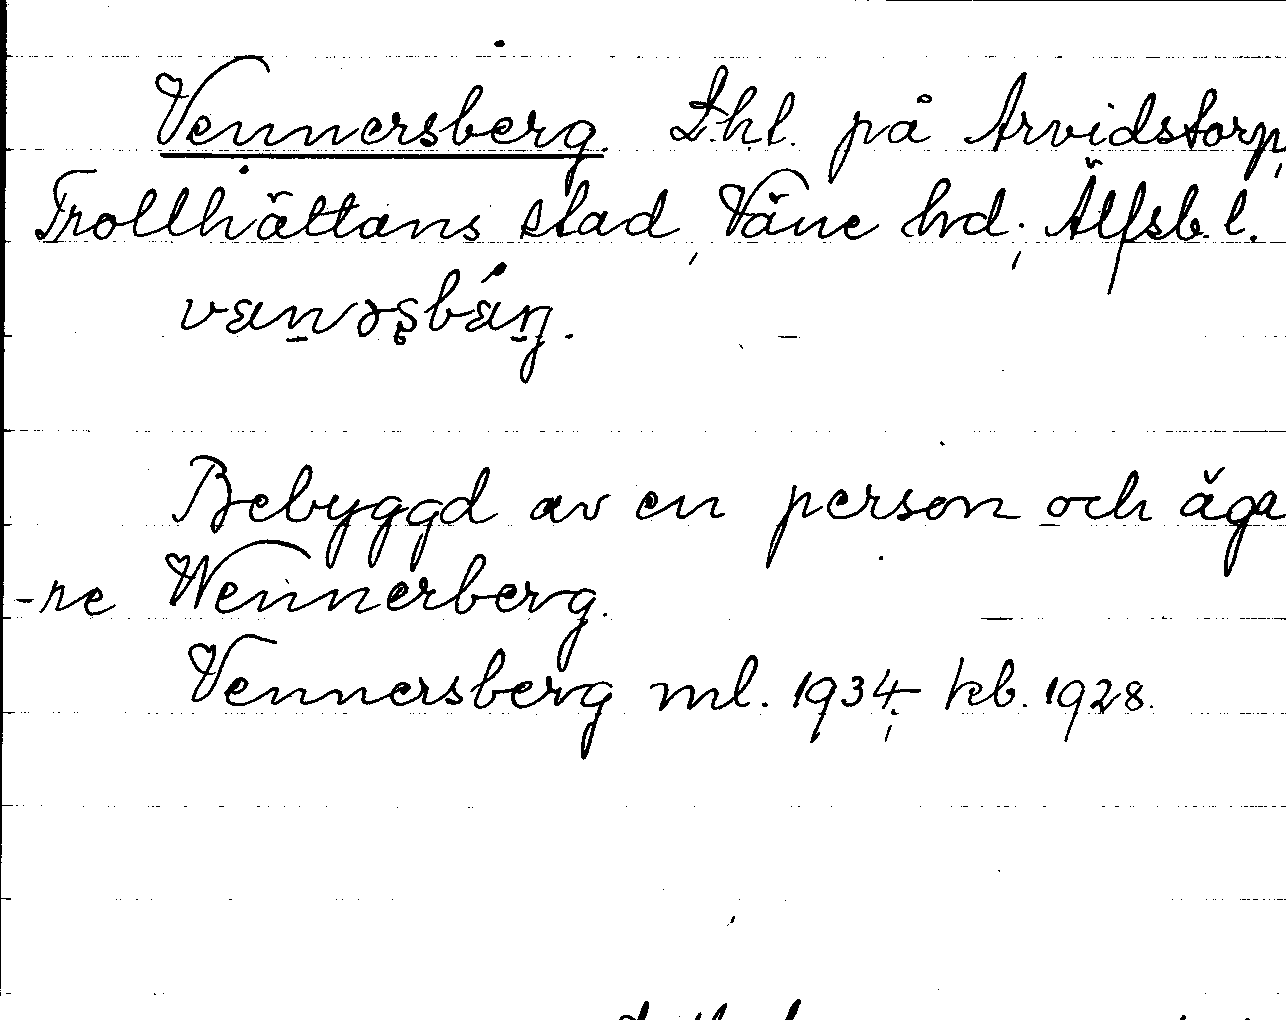 Vennersberg. Lhl. på Arvidstorp,
Trollhättans stad, Väne hd; Älfsb. l.
Bebyggd av en person och äga
-re Wennerberg.
Vennersberg ml. 1934; kb. 1928.